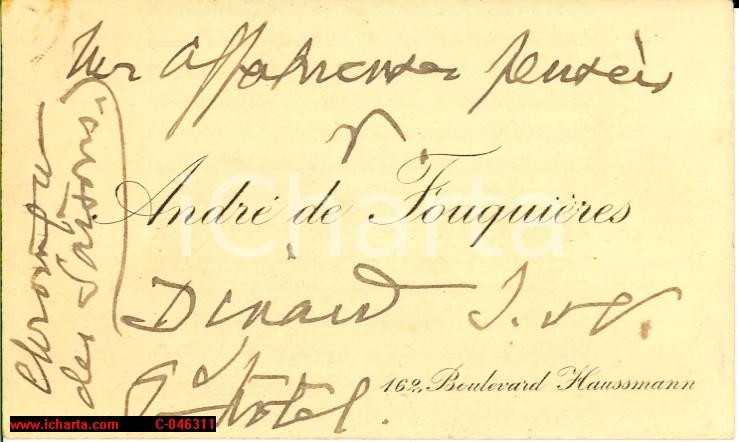 affectueuses pensées
André de Fouquières
Dinard I. et V.
Gd Hôtel.
162, Boulevard Haussmann
Chronique
des Saisons.
iCharta
www.icharta.com C-046311